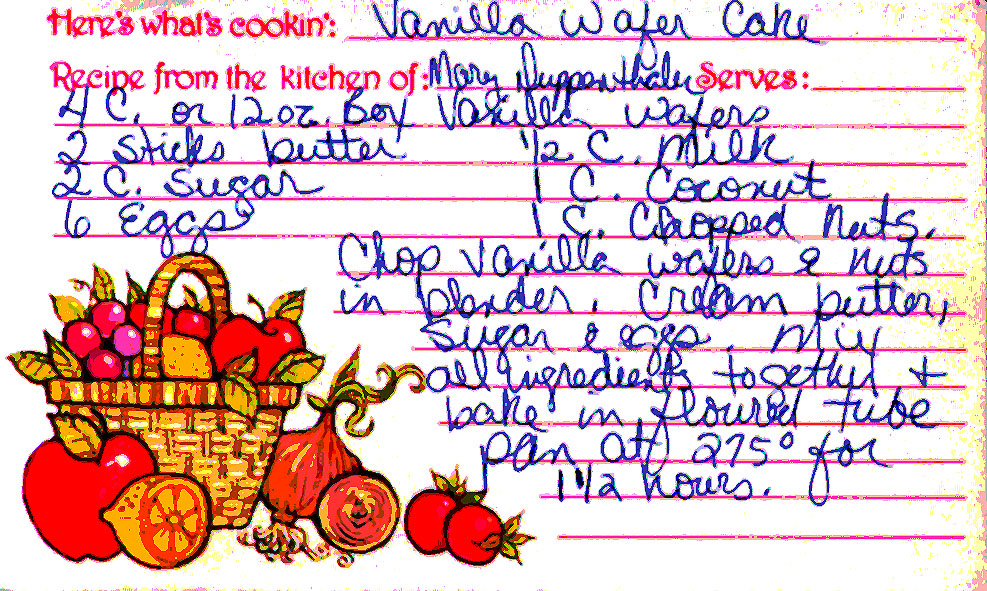 Here's what's cookin': Vanilla Wafer Cake
Recipe from the kitchen of: Mary Duppenthaler Serves:
4 C. or 12 oz. Box Vanilla wafers
2 Sticks butter 1/2 C. Milk
2 C. Sugar 1 C. Coconut
6 Eggs 1 C. Chopped Nuts.
Chop Vanilla wafers & nuts
in blender. Cream butter,
Sugar & eggs. Mix
all ingredients together +
bake in floured tube
pan at 275° for
1 1/2 hours.